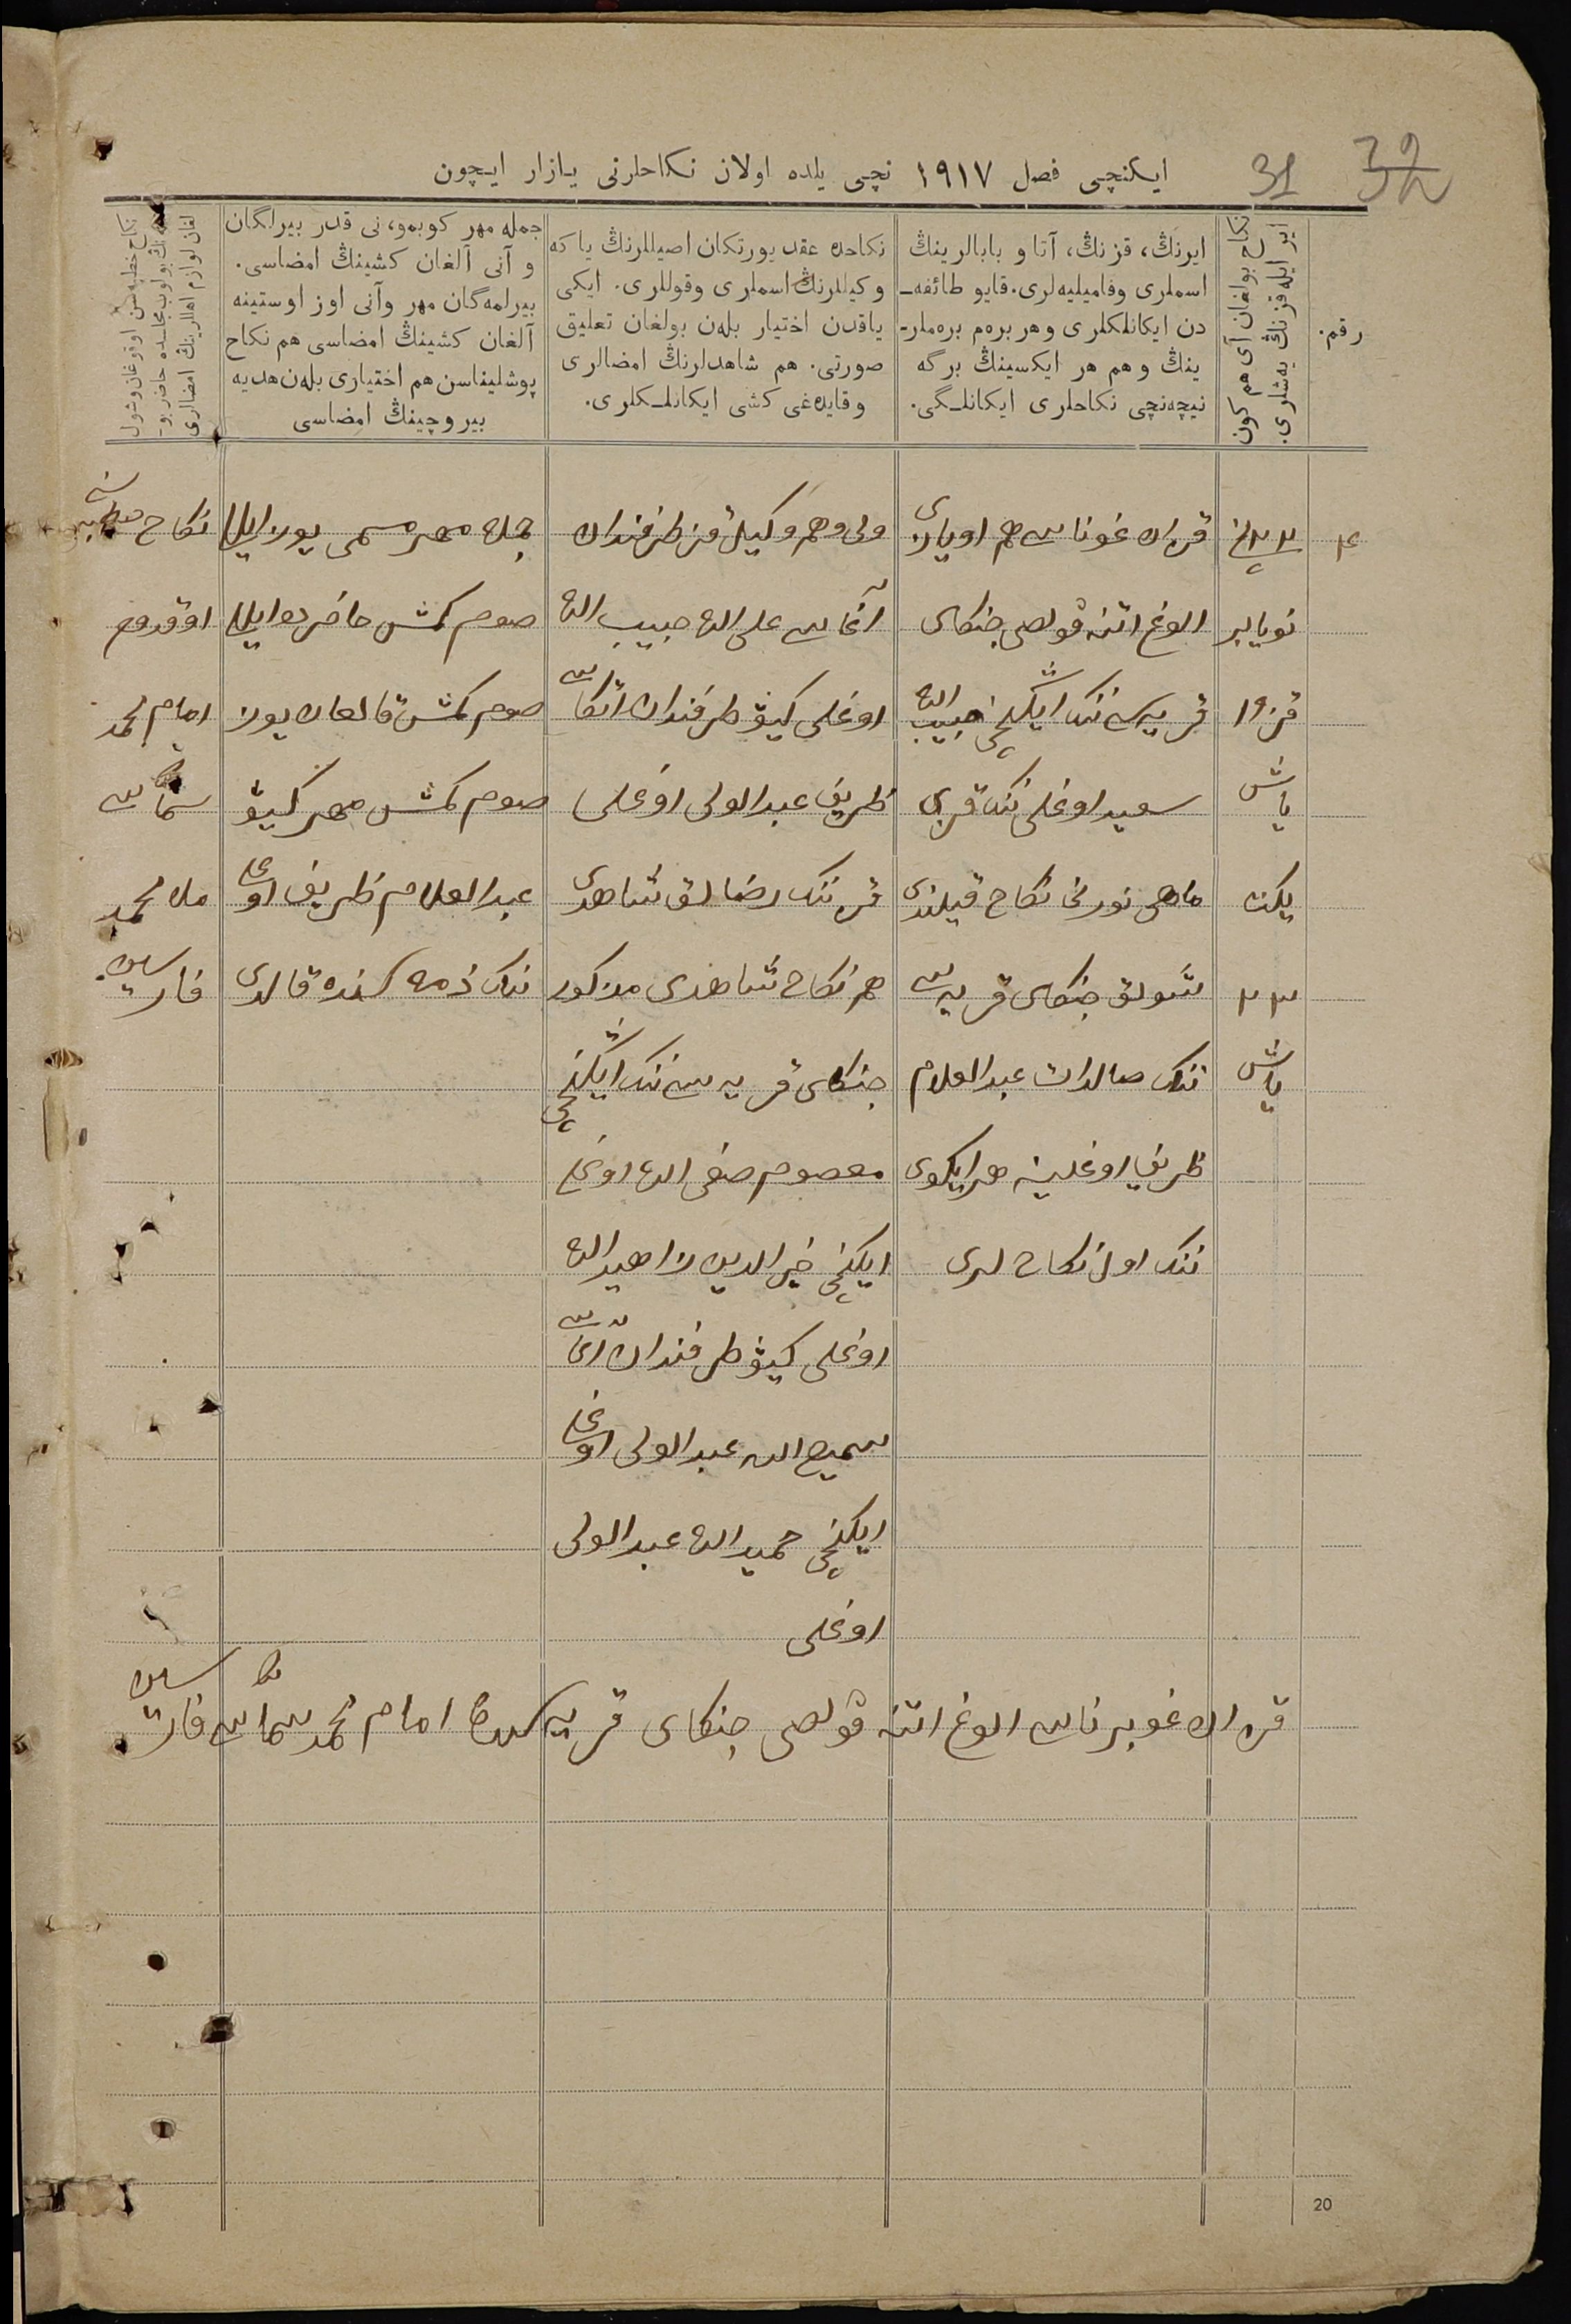 31 32
ایکنچی فصل ١٩١٧ نچی یلده اولان نکاحلرنی یازار ایچون
رقم.
نکاح بولغان آی هم کون
ایر ایله قزنڭ یه‌شلری.
ایرنڭ، قزنڭ، آتا و بابالرینڭ
اسملری وفامیلیه‌لری. قایو طائفه‌ـ
دن ایکانلکلری وهر بره‌م بره‌ملر-
ینڭ وهم هر ایکسینڭ برگه
نیچه‌نچی نکاحلری ایکانلـگی.
نکاحده عقد یورتکان اصیللرنڭ یا که
وکیللرنڭ اسملری وقوللری. ایکی
یاقدن اختیار بله‌ن بولغان تعلیق
صورتی. هم شاهدلرنڭ امضالری
وقایده‌غی کشی ایکانلـکلری.
جمله مهر کوبمو، نی قدر بیرلگان
و آنی آلغان کشینڭ امضاسی.
بیرلمه‌گان مهر وآنی اوز اوستینه
آلغان کشینڭ امضاسی هم نکاح
پوشلیناسن هم اختیاری بله‌ن هدیه
بیروچینڭ امضاسی
نکاح خطبه‌سن اوقوغان وشول
لغان لوازم اهللرینڭ امضالری
٤
نویابر
قز ١٩
یاش
یکت
٢٣
یاش
قزان غوناسی هم اویازی
الوغ اتنه ڤولصی جنکای
قریه سی ننک ایشکنچی حبیب الله
سعید اوغلی ننک قزی
ماهی نورنی نکاح قیلندی
شولق جنکای قریه سی
ننک صالدات عبدالعلام
ظریف اوغلینه هر ایکوی
ننک اول نکاح لری
ولی وهم وکیل قز طرفندان
آغاسی علی الله حبیب الله
اوغلی کیوڤ طرفندان آتاسی
ظریف عبدالولی اوغلی
قز ننک رضالق شاهدی
هم نکاح شاهدی مذکور
جنکای قریه سی ننک ایشکنچی
معصوم صفی الله اوغلی
ایکنچی خیرالدین زاهیدالله
اوغلی کیوڤ طرفندان
سمیع الله عبدالولی اوغلی
ایکنچی حمیدالله عبدالولی
اوغلی
جمله مهر مسمی یوز ایللی
صوم کمش حاضردا ایللی
صوم کمش قالغان یوز
صوم کمش مهر کیوڤ
عبدالعلام ظریف اوغلی
ننک ذمه سنده قالدی
نکاح خطبه سنی
اوقودوم
امام محمد
ملا محمد
قزان غوبرناسی الوغ اتنه ڤولصی جنکای قریه سنده امام محمد
20